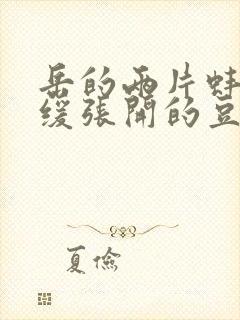 岳的兩片蚌
缓張開的豆
夏儉